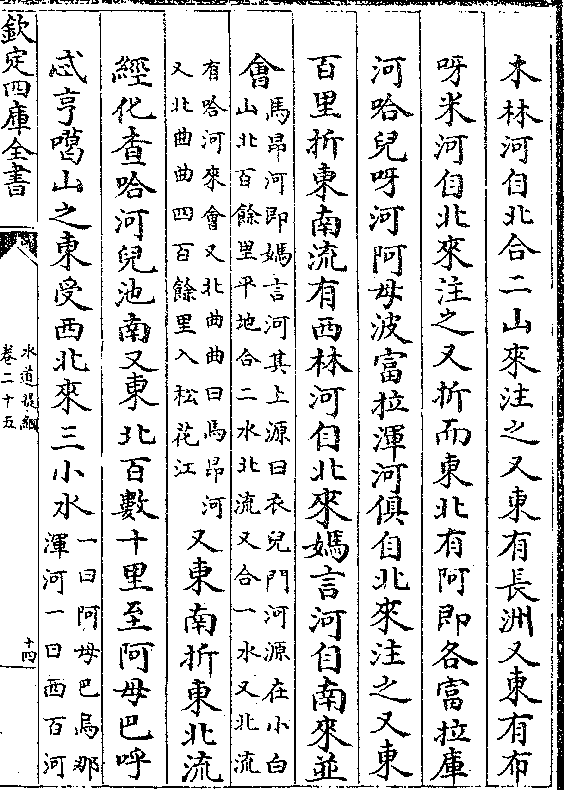 木林河自北合二山來注之又東有長洲又東有布
呀米河自北來注之又折而東北有阿即各富拉庫
河哈兒呀河阿母波富拉渾河俱自北來注之又東
百里折東南流有西林河自北來媽言河自南來並
會馬昂河即媽言河其上源曰衣兒門河源在小白
山北百餘里平地合二水北流又合一水又北流
有哈河來會又北曲曲曰馬昂河
又北曲曲四百餘里入松花江
又東南折東北流
經化査哈河兒池南又東北百數十里至阿母巴呼
忒亨噶山之東受西北來三小水一曰阿母巴烏那
渾河一曰西百河
欽定四庫全書
水道提綱
卷二十五
十四